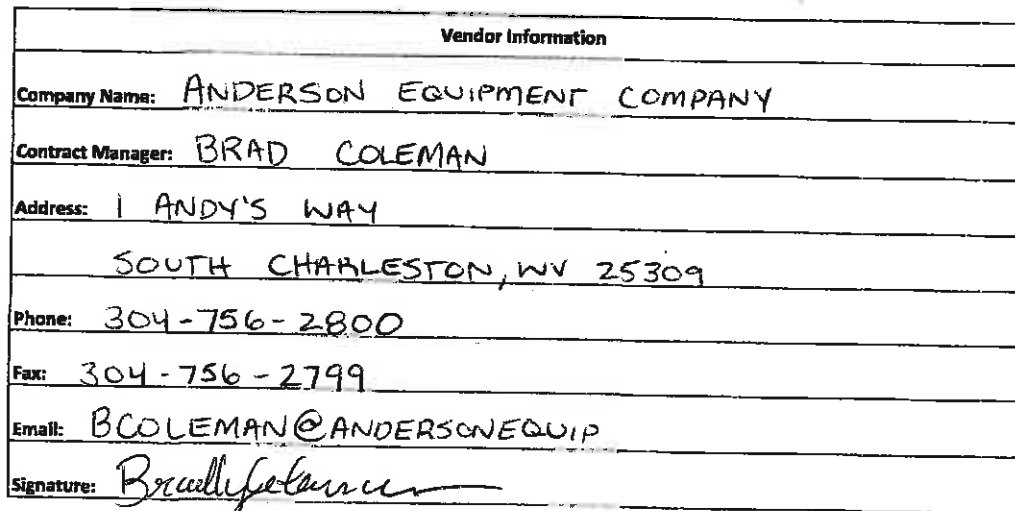 Vendor Information
Company Name: ANDERSON EQUIPMENT COMPANY
Contract Manager: BRAD COLEMAN
Address: 1 ANDY'S WAY
SOUTH CHARLESTON, WV 25309
Phone: 304-756-2800
Fax: 304-756-2799
Email: BCOLEMAN@ANDERSONEQUIP
Signature: